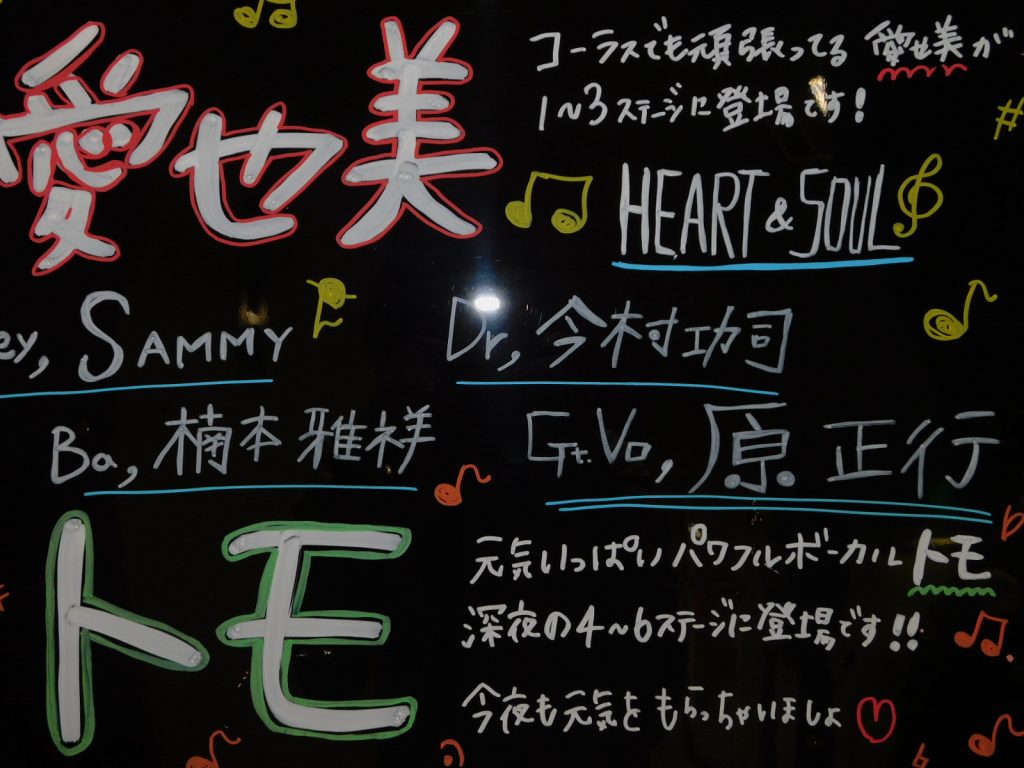 愛也美
コーラスでも頑張ってる 愛也美が
1~3ステージに登場です!
HEART & SOUL
ey, SAMMY
Dr, 今村功司
Ba, 楠本 雅祥
Gt.Vo, 原 正行
トモ
元気いっぱいパワフルボーカル トモ
深夜の4~6ステージに登場です!!
今夜も元気をもらっちゃいましょ♡